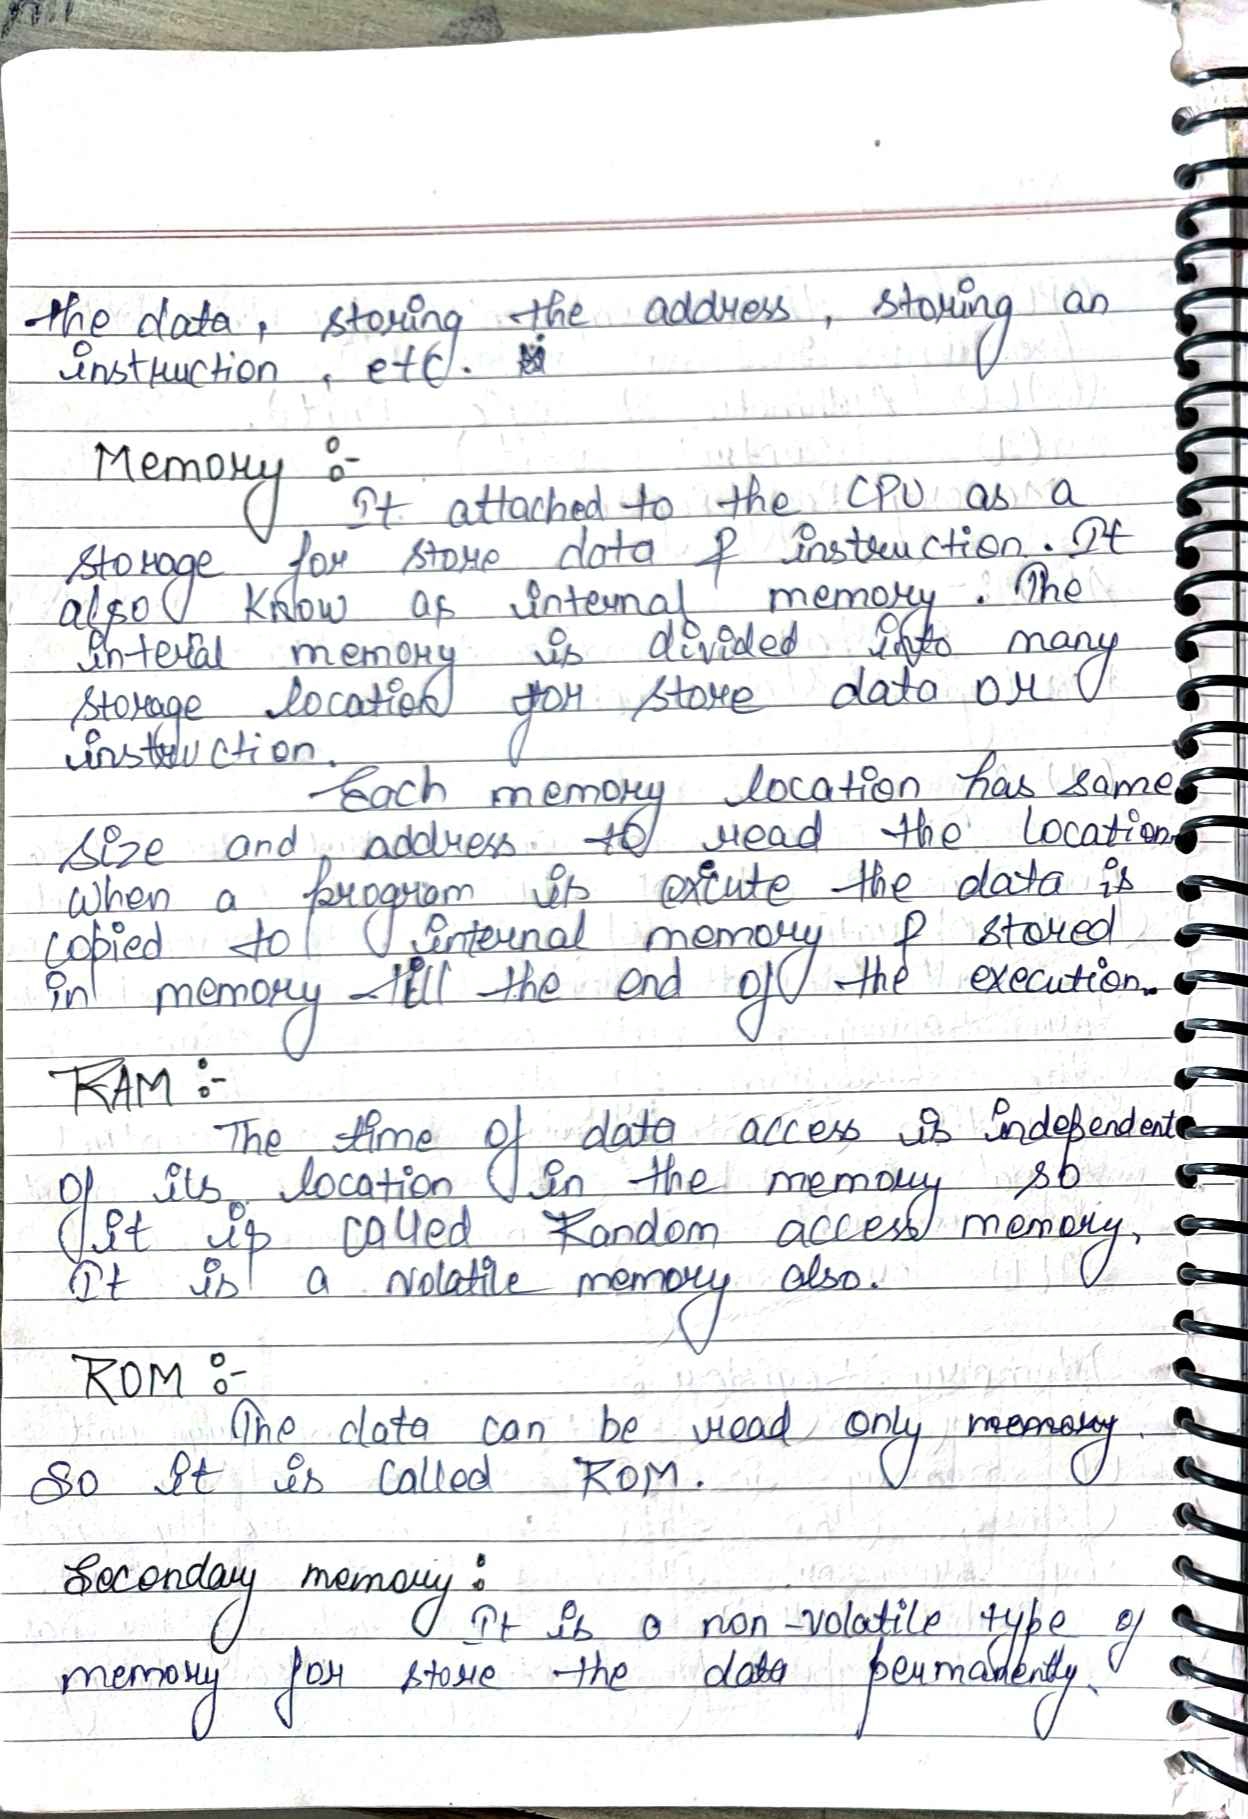 the data, storing the address, storing an
instruction, etc.
Memory :-
It attached to the CPU as a
storage for store data & instruction. It
also know as internal memory. The
interal memory is divided into many
storage location for store data or
instruction.
Each memory location has same
size and address to read the location.
When a program is exicute the data is
copied to internal memory & stored
in memory till the end of the execution.
RAM :-
The time of data access is independent
of its location in the memory so
it is called Random access memory,
It is a volatile memory also.
ROM :-
The data can be read only memory.
So it is called ROM.
Secondary memory :
It is a non-volatile type of
memory for store the data permanently.